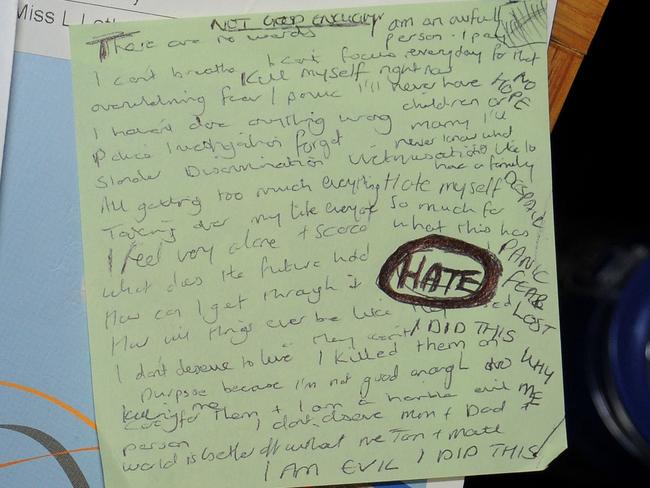 Miss L Let
NOT GOOD ENOUGH
There are no words
am an awful
person - I pay
everyday for that
I can't breathe I can't focus
Kill myself right now
overwhelming fear / panic I'll never have
NO
HOPE
I haven't done anything wrong
children or
marry I'll
never know what
Police investigation forget
Slander Discrimination Victimisation
it's like to
have a family
All getting too much everything Hate myself
DESPAIR
Taking over my life everyone so much for
what this has
I feel very alone + scared
What does the future hold
PANIC
HATE
FEAR
How can I get through it
LOST
How will things ever be like they
I DID THIS
I don't deserve to live They won't
I killed them on
WHY
purpose because I'm not good enough to
ME
care for them + I am a horrible evil
killing me
person I don't deserve Mum + Dad +
world is better off without me
I AM EVIL I DID THIS